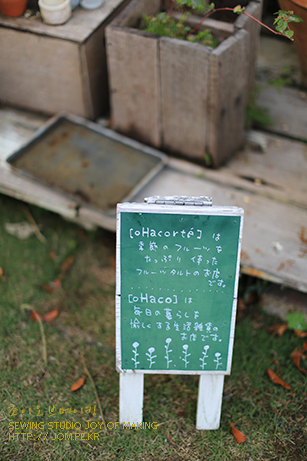 [oHacorté] は
季節のフルーツを
たっぷり 使った
フルーツタルトのお店
です。
[oHaco] は
毎日の暮らしを
愉しくする生活雑貨の
お店です。
SEWING STUDIO JOY OF MAKING
HTTP://JOMI.PE.KR